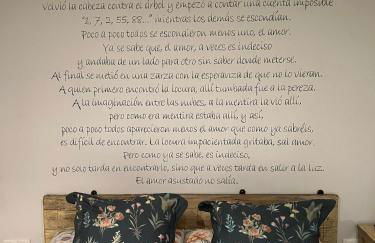 Volvió la cabeza contra el árbol y empezó a contar una cuenta imposible
"1, 7, 2, 55, 88..." mientras los demás se escondían.
Poco a poco todos se escondieron menos uno, el amor.
Ya se sabe que, el amor, a veces es indeciso
y andaba de un lado para otro sin saber donde meterse.
Al final se metió en una zarza con la esperanza de que no lo vieran.
A quien primero encontró la locura, allí tumbada fue a la pereza.
A la imaginación entre las nubes, a la mentira la vió allí,
pero como era mentira estaba allí, y así,
poco a poco todos aparecieron menos el amor que como ya sabréis,
es difícil de encontrar. La locura impacientada gritaba, sal amor.
Pero como ya se sabe, es indeciso,
y no solo tarda en encontrarlo, sino que a veces tarda en salir a la luz.
El amor asustado no salía.